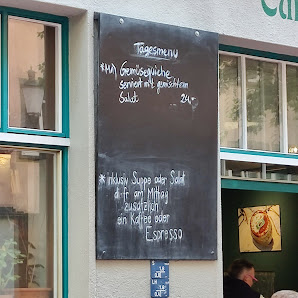 Tagesmenu
Gemüsequiche
serviert mit gemischtem
Salat 24.-
* inklusiv Suppe oder Salat
di-fr am Mittag
zusätzlich
ein Kaffee oder
Espresso